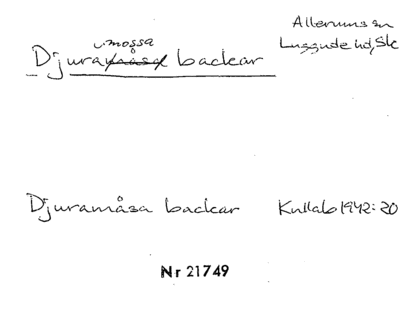 Allerums sn
Luggude hd, Sk
mossa
Djuramåsa backar
Djuramåsa backar Kullab 1942:20
Nr 21749